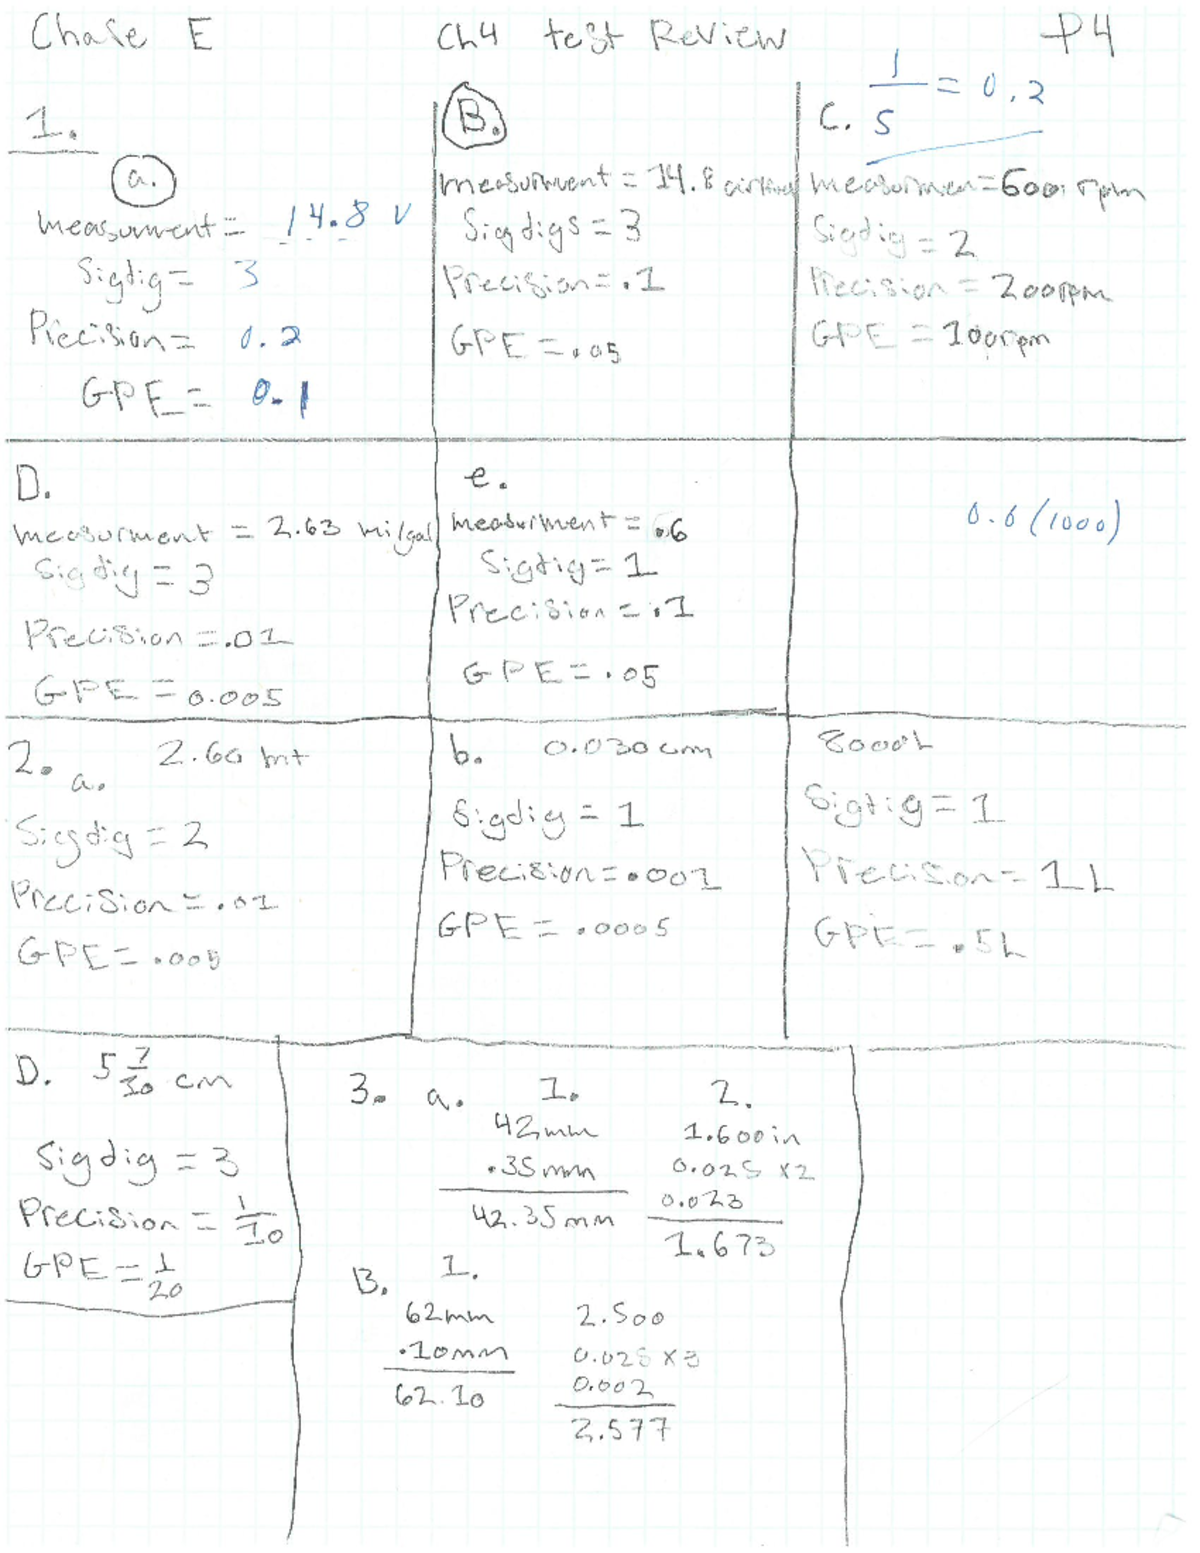 Chase E Ch4 test Review P4
1.
a.
measurment = 14.8 V
Sigdig = 3
Precision = 0.2
GPE = 0.1
B.
measurment = 14.8
Sigdigs = 3
Precision = .1
GPE = .05
C. 1/5 = 0.2
measurmen = 600 rpm
Sigdig = 2
Precision = 200rpm
GPE = 100rpm
D.
measurment = 2.63 mi/gal
Sigdig = 3
Precision = .01
GPE = 0.005
e.
measurment = .6
Sigdig = 1
Precision = .1
GPE = .05
0.6 (1000)
2. a. 2.60 mt
Sigdig = 2
Precision = .01
GPE = .005
b. 0.030 cm
Sigdig = 1
Precision = .001
GPE = .0005
8000L
Sigdig = 1
Precision = 1L
GPE = .5L
D. 5 7/10 cm
Sigdig = 3
Precision = 1/10
GPE = 1/20
3. a. 1. 2.
42mm
.35mm
42.35mm
1.600in
0.025 x2
0.023
1.673
B. 1.
62mm
.10mm
62.10
2.500
0.025 x3
0.002
2.577